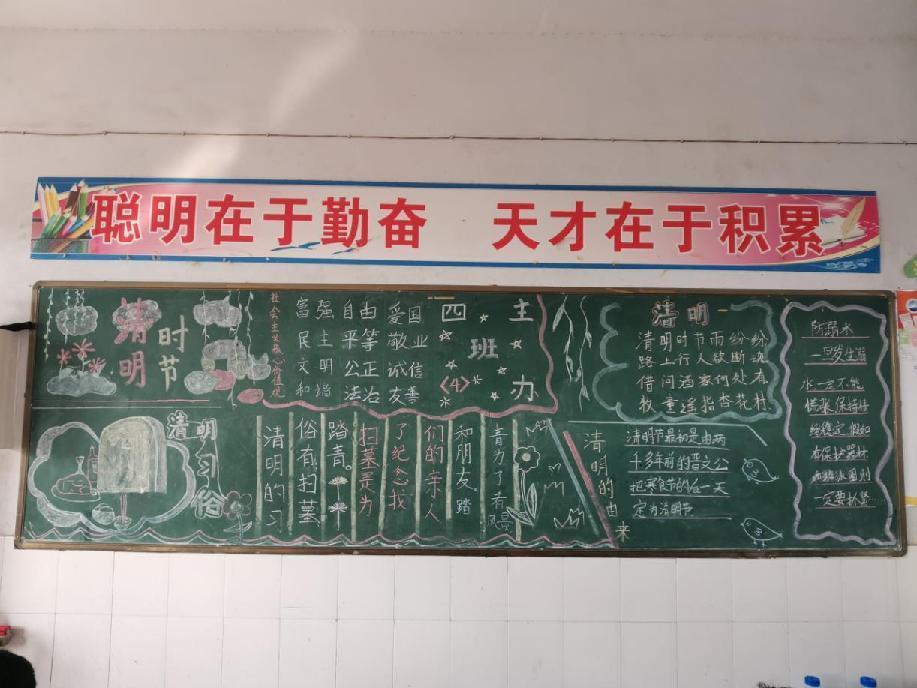 聪明在于勤奋 天才在于积累
清明
时节
社会主义核心价值观
富强 自由 爱国
民主 平等 敬业
文明 公正 诚信
和谐 法治 友善
四班
<4>
主办
清明
清明时节雨纷纷
路上行人欲断魂
借问酒家何处有
牧童遥指杏花村
防溺水
一旦发生溺
水一定不能
慌张保持
稳定假如
有保护器材
一定要抓紧
清明习俗
清明的习
俗有扫墓
踏青。
扫墓是为
了纪念我
们的亲人
和朋友踏
青为了看
清明的由来
清明节最初是由两
千多年前的晋文公
把寒食节的后一天
定为清明节